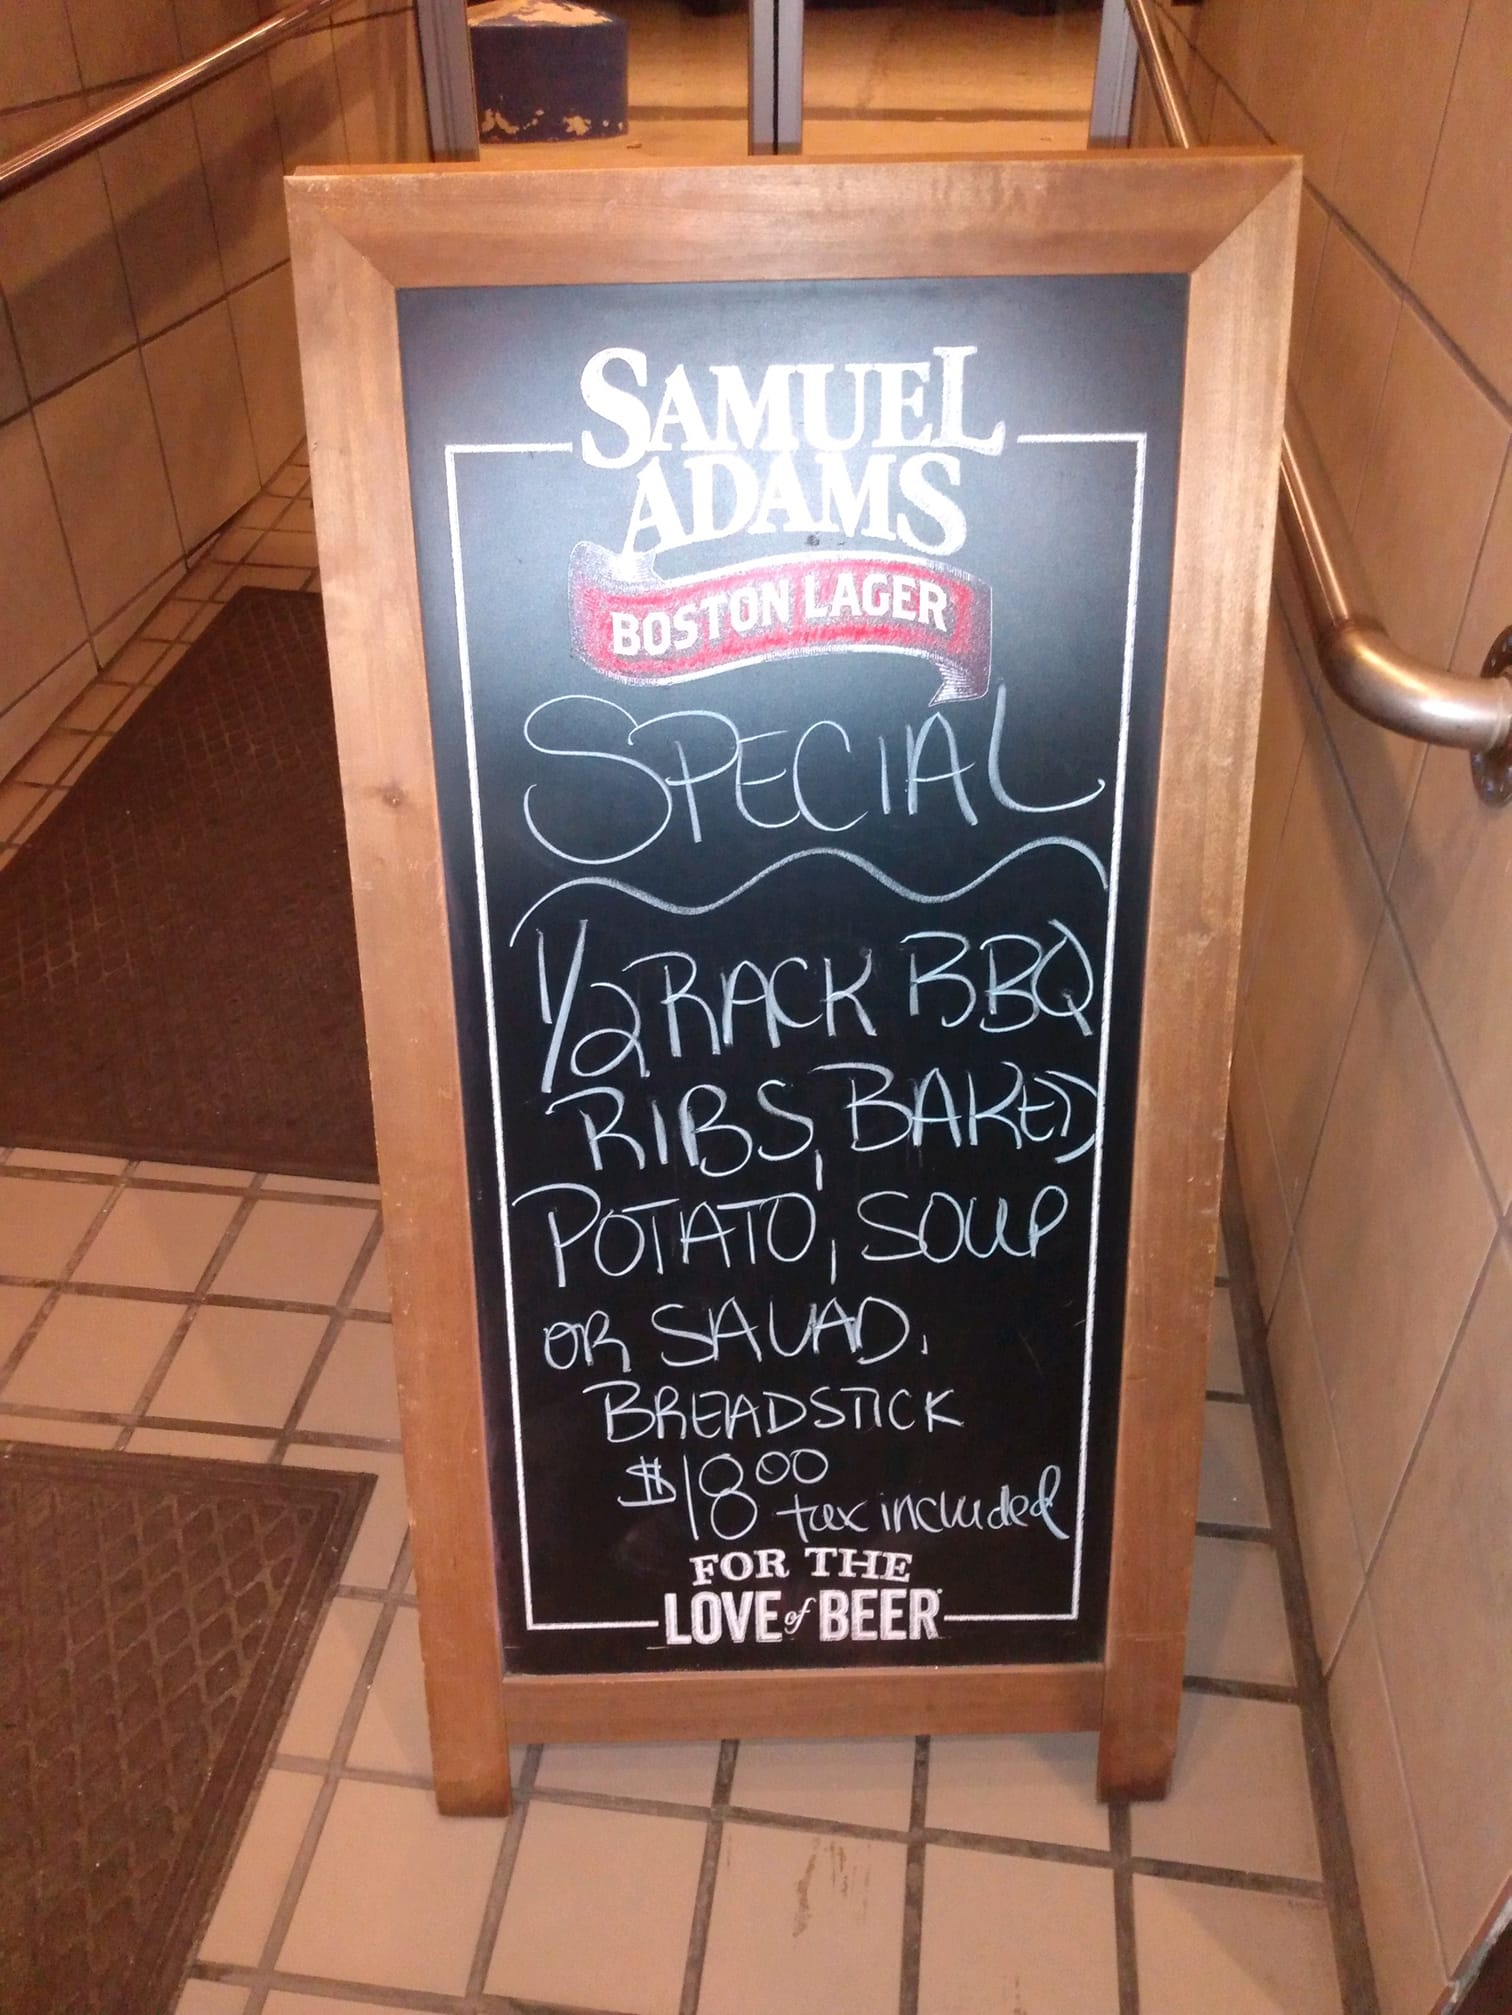 SAMUEL
ADAMS
BOSTON LAGER
SPECIAL
1/2 RACK BBQ
RIBS, BAKED
POTATO, SOUP
OR SALAD.
BREADSTICK
$18.00 tax included
FOR THE
LOVE of BEER